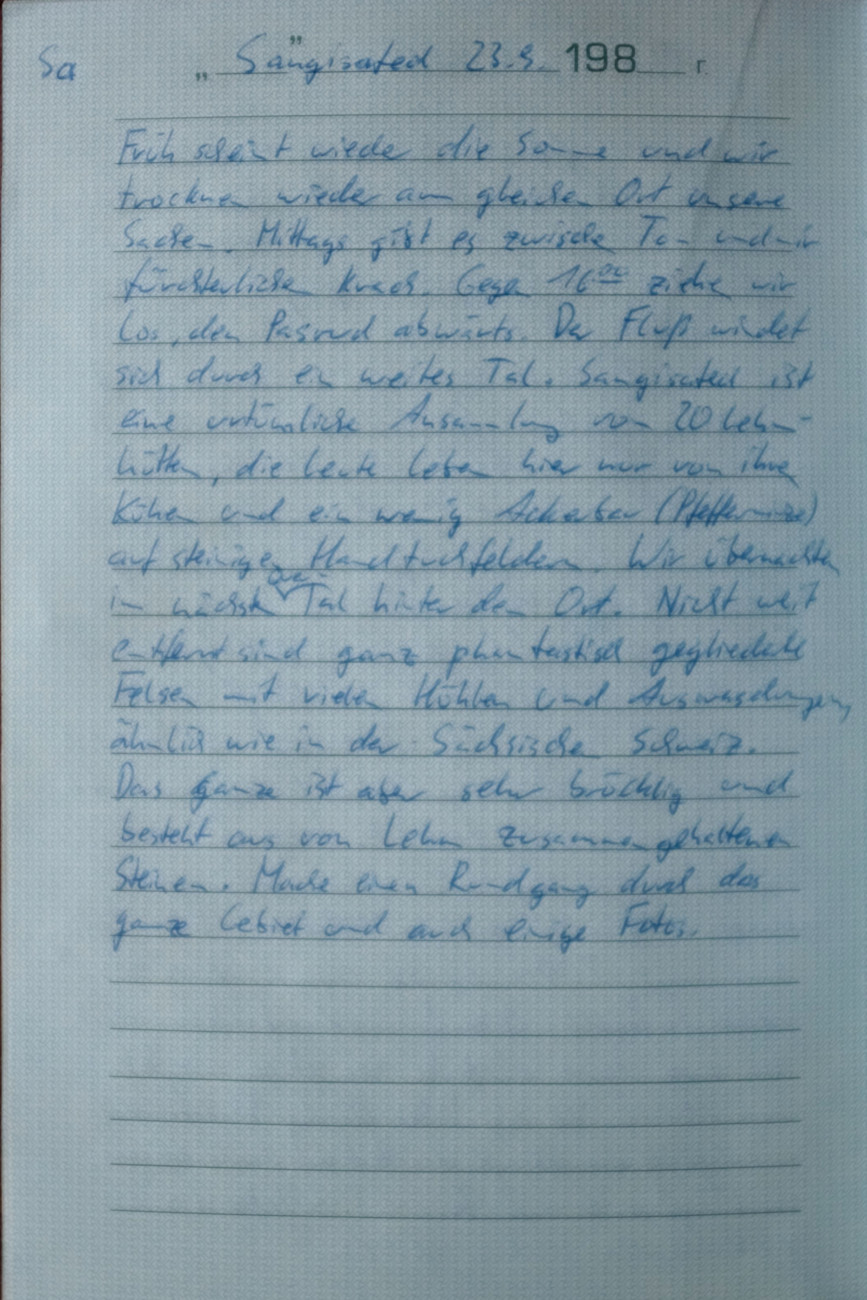 Sa „ Sangisafed " 23.9. 198 г.
Früh scheint wieder die Sonne und wir
trocknen wieder am gleichen Ort unsere
Sachen. Mittags gibt es zwischen Tom und mir
fürchterlichen Krach. Gegen 16 00 ziehen wir
los, den Pasrud abwärts. Der Fluß windet
sich durch ein weites Tal. Sangisafed ist
eine urtümliche Ansammlung von 20 Lehm-
hütten, die Leute leben hier nur von ihren
Kühen und ein wenig Ackerbau (Pfefferminze)
auf steinigen Handtuchfeldern. Wir übernachten
im nächsten Tal hinter dem Ort. Nicht weit
entfernt sind ganz phantastisch gegliederte
Felsen mit vielen Höhlen und Auswaschungen,
ähnlich wie in der Sächsischen Schweiz.
Das ganze ist aber sehr bröcklig und
besteht aus von Lehm zusammengehaltenen
Steinen. Mache einen Rundgang durch das
ganze Gebiet und auch einige Fotos.